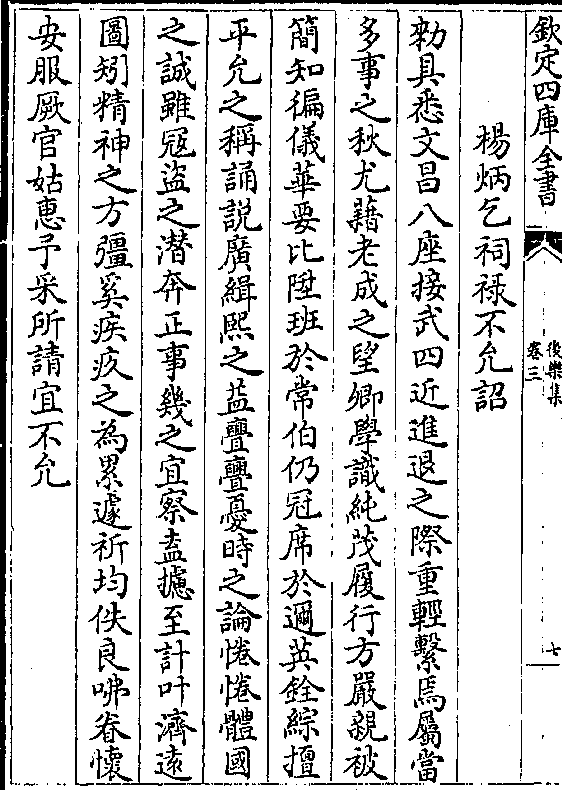 欽定四庫全書
後樂集
卷三
七
楊炳乞祠祿不允詔
勑具悉文昌八座接武四近進退之際重輕繫焉屬當
多事之秋尤藉老成之望卿學識純茂履行方嚴親被
簡知徧儀華要比陞班於常伯仍冠席於邇英銓綜擅
平允之稱誦説廣緝熙之益亹亹憂時之論惓惓體國
之誠雖冦盜之潛奔正事幾之宜察盍攄至計叶濟逺
圖矧精神之方彊奚疾疚之為累遽祈均佚良咈眷懷
安服厥官姑惠予采所請宜不允